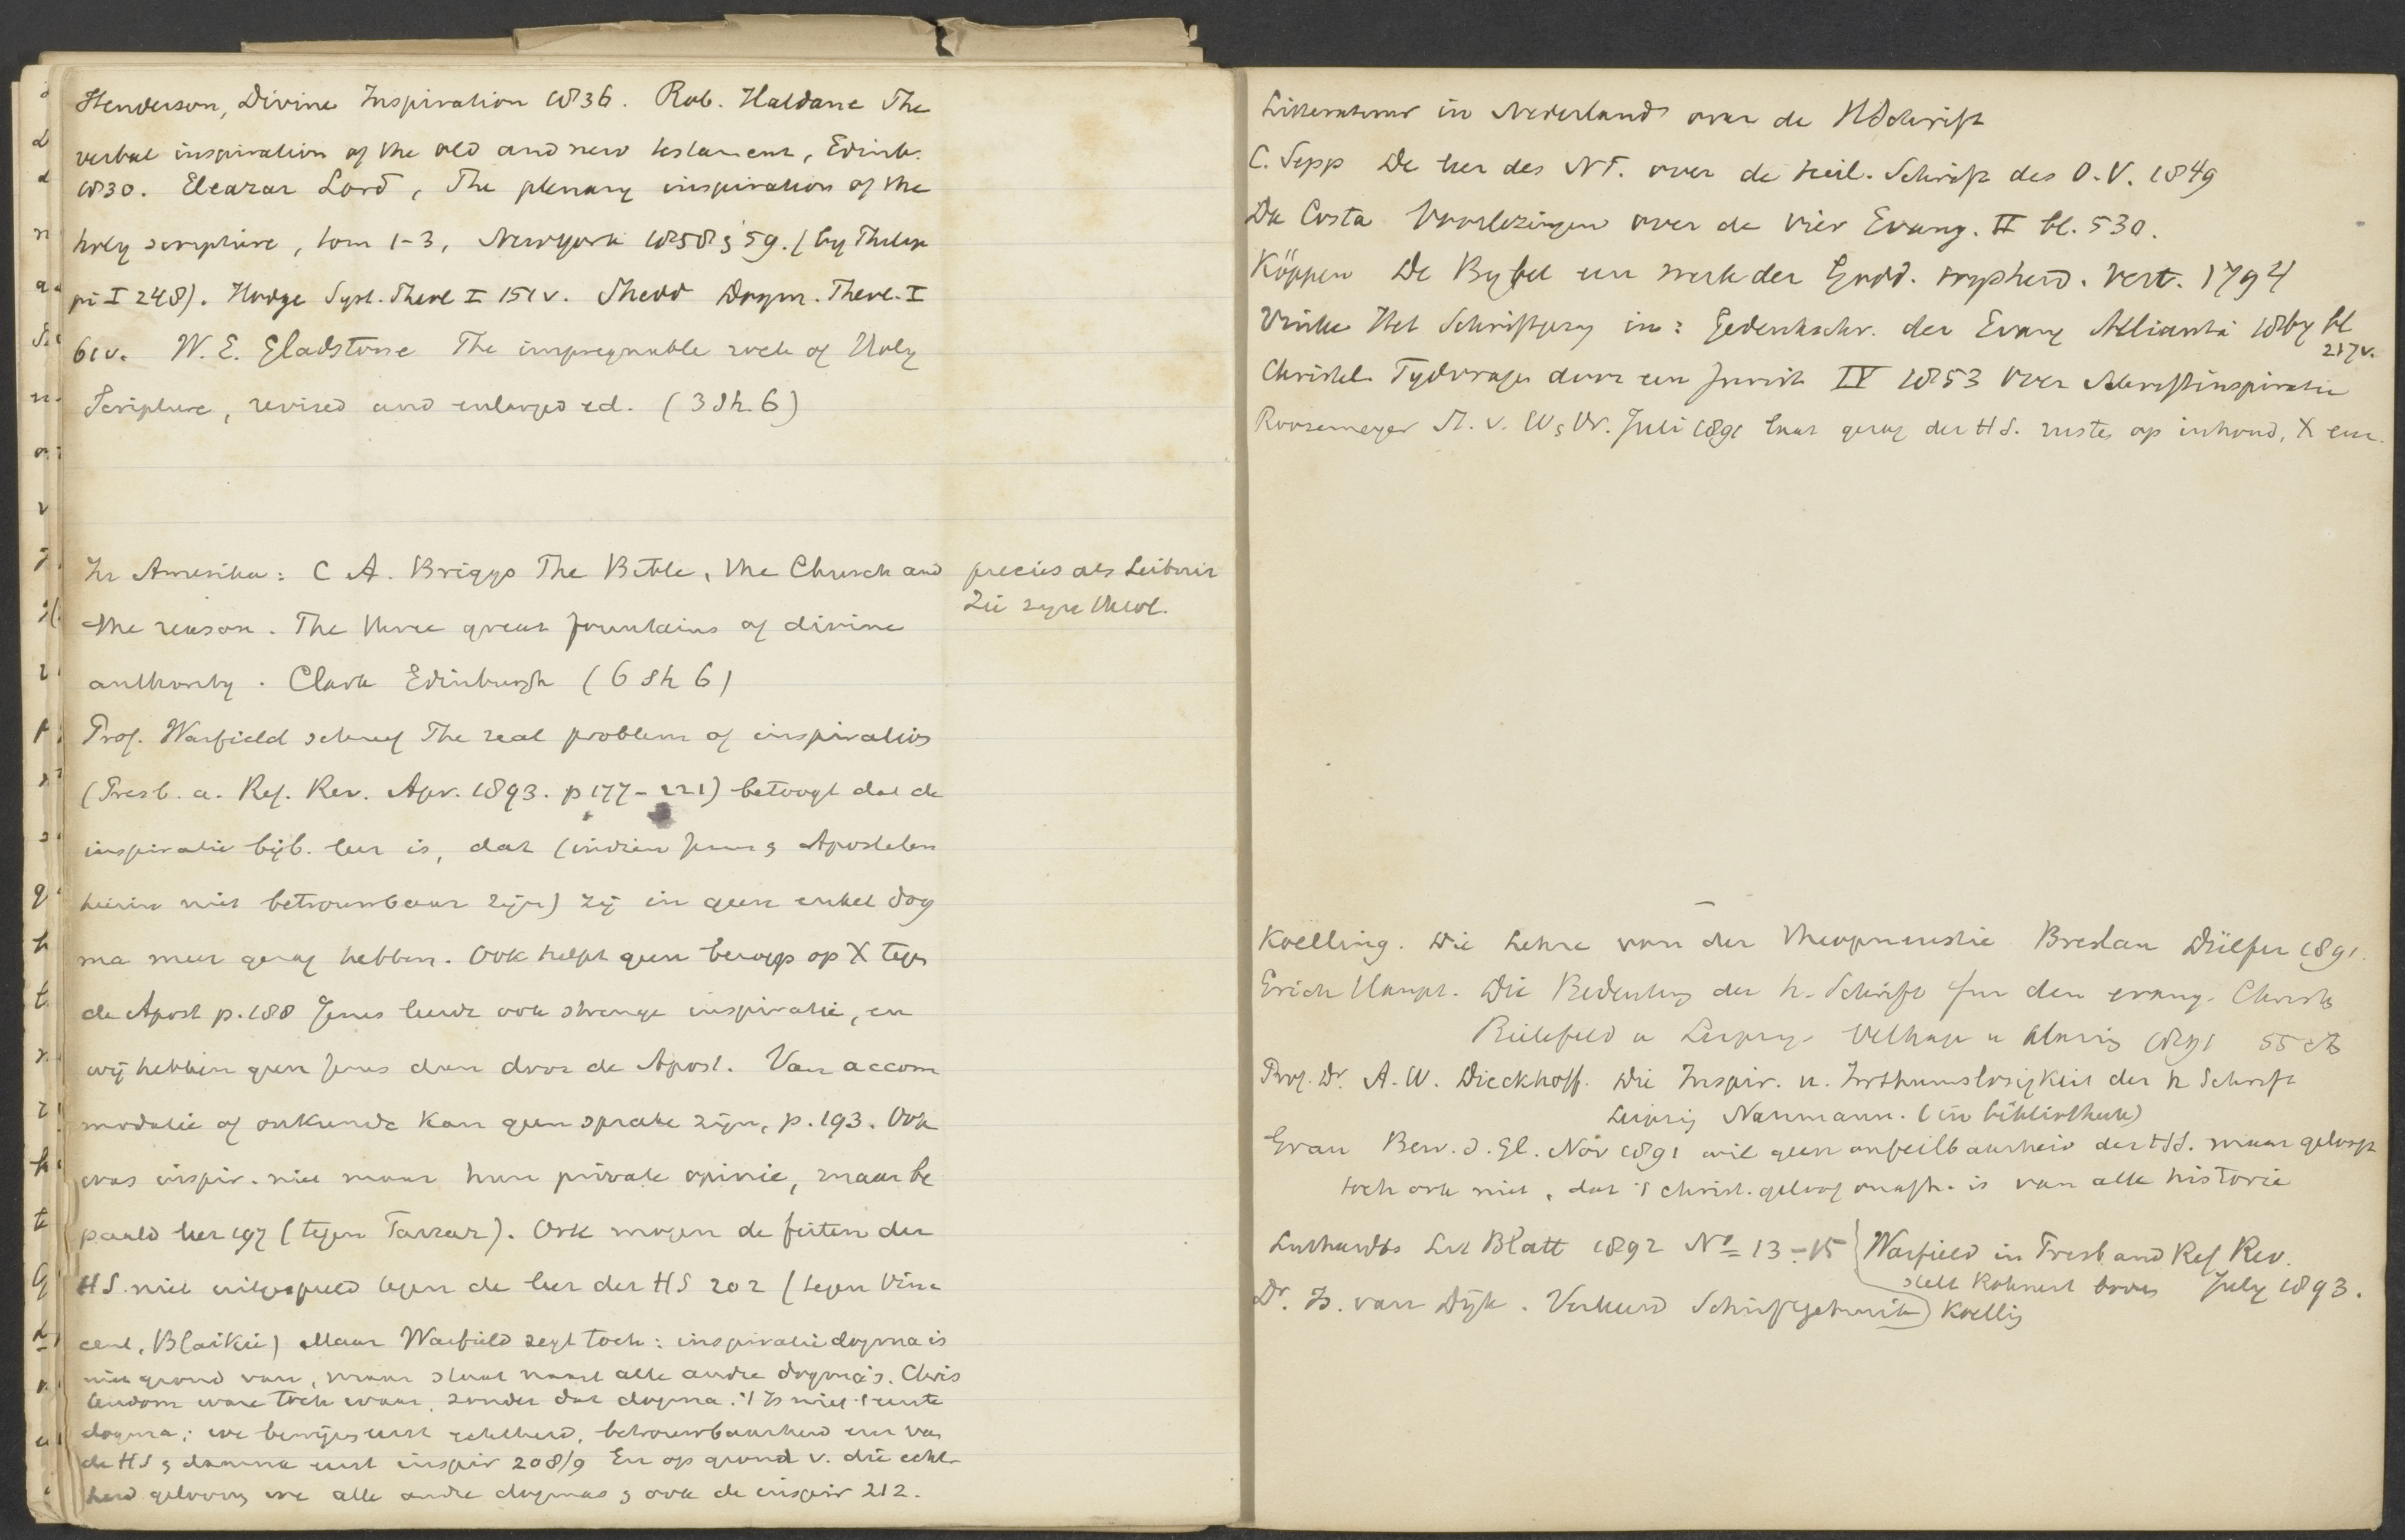 Henderson, Divine Inspiration 1836. Rob. Haldane The
verbal inspiration of the old and new testament, Edinb.
1830. Eleazar Lord, The plenary inspiration of the
holy scripture, tom 1-3, Newyork 1858 & 59. (by Philip
pi I 248). Hodge Syst. Theol I 151v. Shedd Dogm. Theol. I
61v. W. E. Gladstone The impregnable rock of Holy
Scripture, revised and enlarged ed. (3 Sh. 6)
In Amerika: C A. Briggs The Bible, the Church and
the reason. The three great fountains of divine
authority. Clark Edinburgh (6 sh 6)
precies als Leibniz
zie zyn theol.
Prof. Warfield schreef The real problem of inspiration
(Presb. a. Ref. Rev. Apr. 1893. p 177-221) betoogt dat de
inspiratie bijb. leer is, dat (indien Jezus & Apostelen
hierin niet betrouwbaar zijn) zij in geen enkel dog
ma meer gezag hebben. Ook helpt geen beroep op X tegen
de Apost p. 188 Jezus leerde ook strenge inspiratie, en
wij hebben geen Jezus dan door de Apost. Van accom
modatie of onkunde kan geen sprake zijn, p. 193. Ook
was inspir. niet maar hun private opinie, maar be
paald leer 197 (tegen Farrar). Ook mogen de feiten der
HS. niet uitgespeeld tegen de leer der HS 202 (tegen Vin
cent, Blaikie) Maar Warfield zegt toch: inspiratiedogma is
niet grond van, maar staat naast alle andre dogma's. Chris
tendom ware toch waar, zonder dat dogma. 't Is niet 't eerste
dogma; we bewijzen eerst echtheid, betrouwbaarheid enz van
de HS & daarna eerst inspir 208/9 En op grond v. die echt
heid gelooven we alle andre dogmas & ook de inspir 212.
Litteratuur in Nederland over de HSchrift
C. Sepp De leer des NT. over de heil. Schrift des O.V. 1849
Da Costa Voorlezingen over de vier Evang. II bl. 530.
Köppen De Bybel een werk der Godd. wysheid. Vert. 1794
Vinke Het Schriftgezag in: Gedenkschr. der Evang Alliantie 1867 bl
217v.
Christel. Tydvragen door een Jurist IV 1853 Over Schriftinspiratie
Roozemeyer St. v. W & Vr. Juli 1891 laat gezag der HS. rusten op inhoud, X enz.
Koelling. Die Lehre von der Theopneustie Breslau Dülfer 1891.
Erich Haupt. Die Bedeutung der h. Schrift fur den evang. Christen
Bielefeld u Leipzig Velhagen u Klasing 1891 55 ct
Prof. Dr. A. W. Dieckhoff. Die Inspir. u. Irrthumslosigkeit der h Schrift
Leipzig Naumann. (in bibliotheek)
Grau Bew. d. Gl. Nov 1891 wil geen onfeilbaarheid der HS. maar gelooft
toch ook niet, dat 't christ. geloof onafh. is van alle historie
Luthardts Lit Blatt 1892 No 13-15
Warfield in Presb and Ref Rev.
stelt Rohnert boven July 1893.
Koelling
Dr. Is. van Dijk. Verkeerd Schriftgebruik